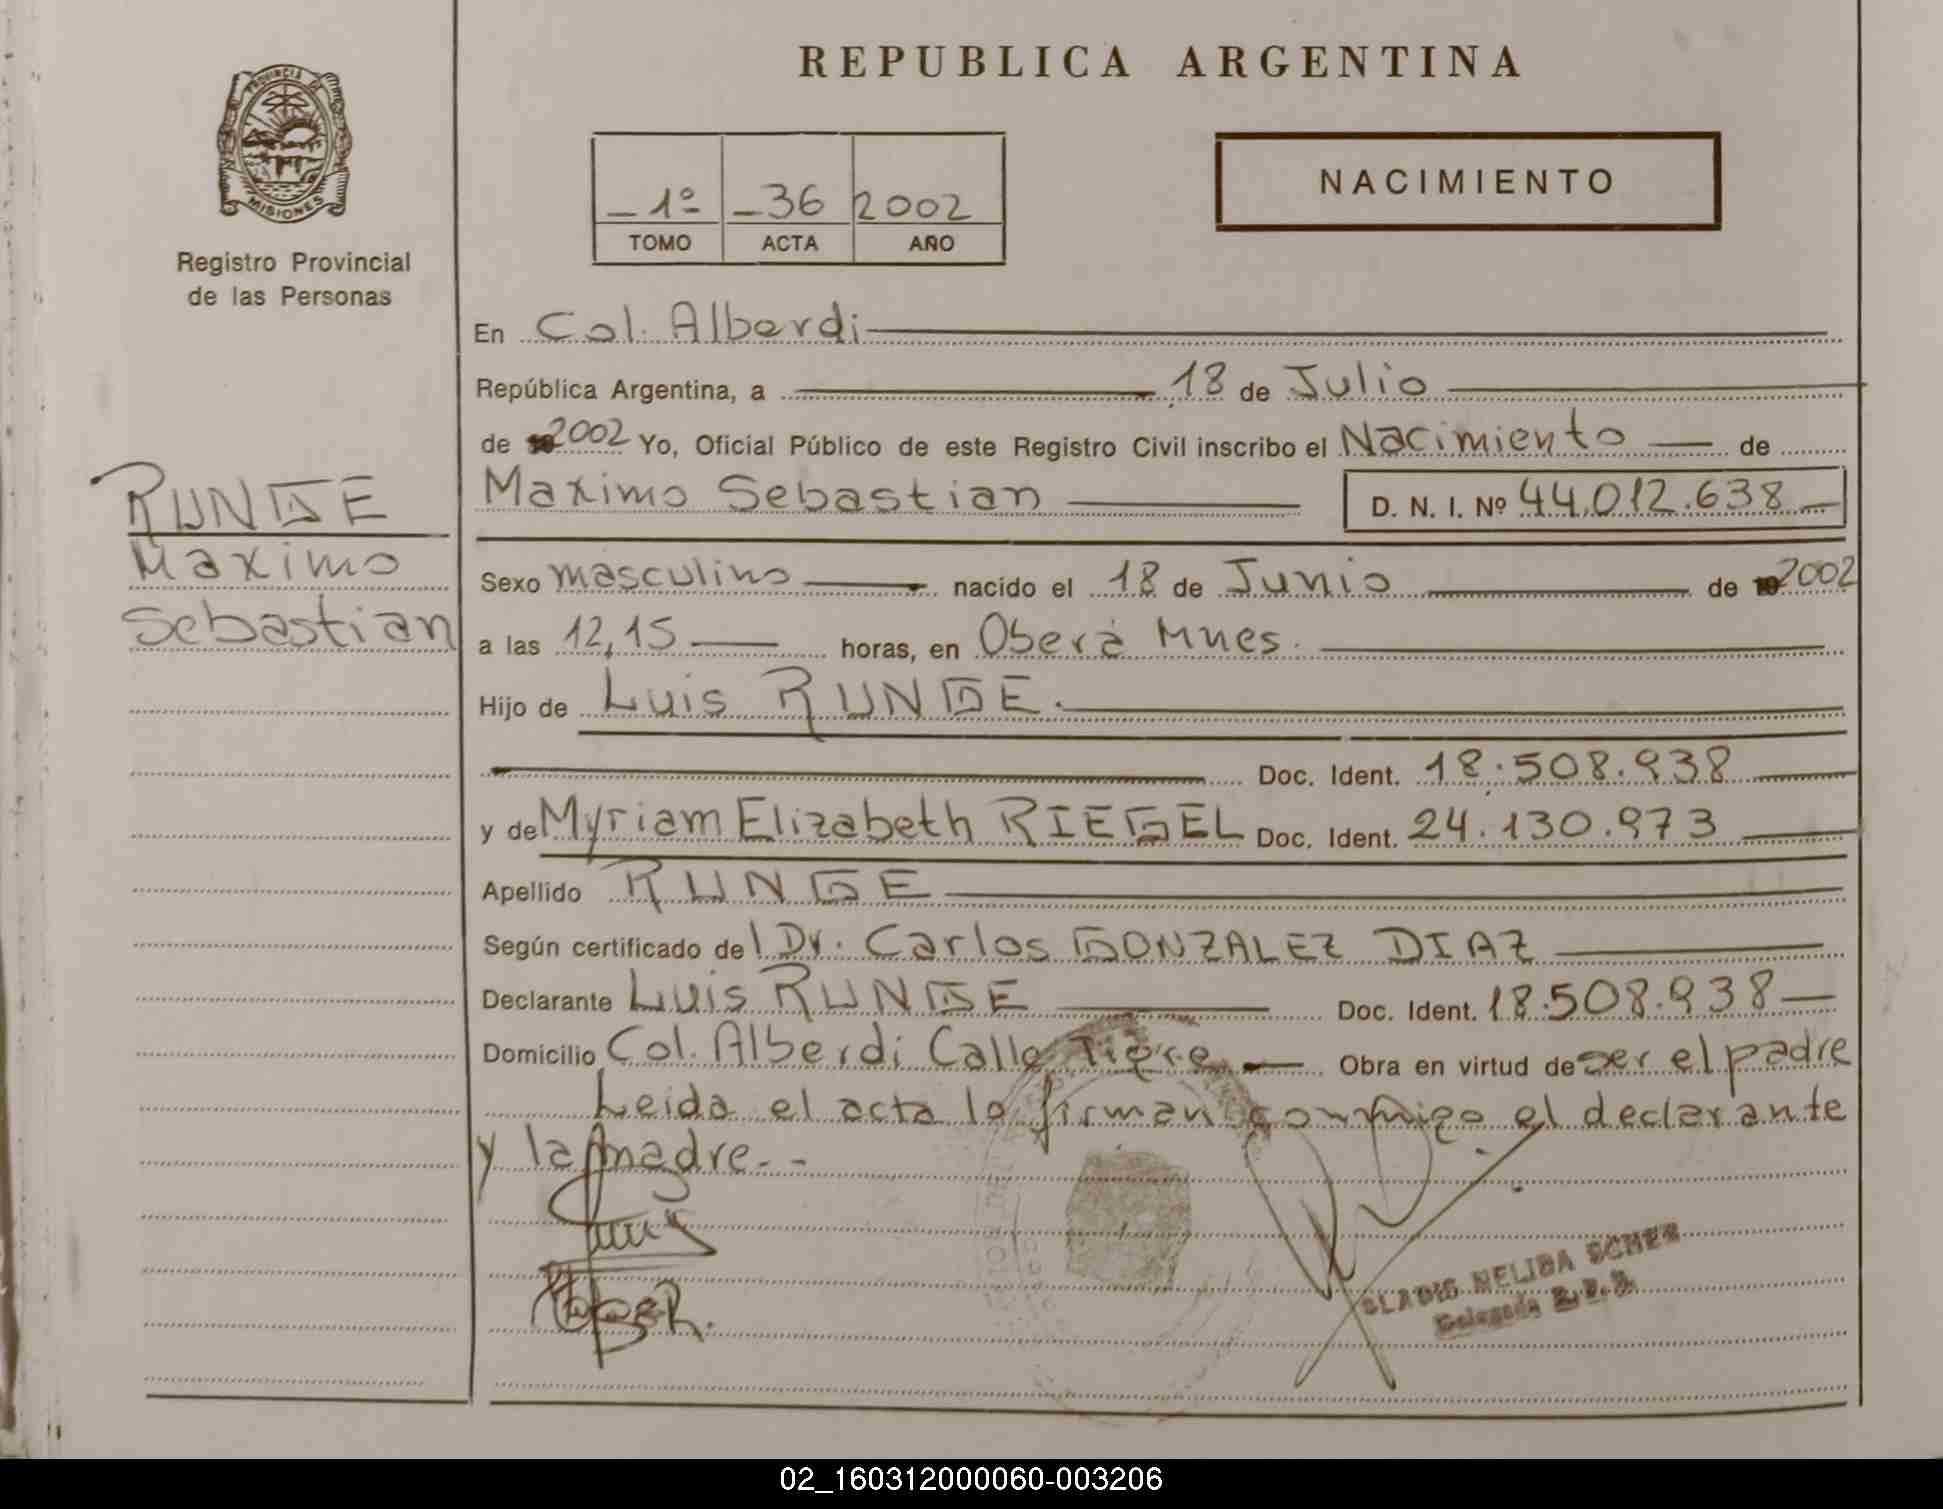 REPUBLICA ARGENTINA
PROVINCIA DE
MISIONES
Registro Provincial
de las Personas
_ 1º _ 36 2002
TOMO ACTA AÑO
NACIMIENTO
En Col. Alberdi
República Argentina, a 18 de Julio
de 2002 Yo, Oficial Público de este Registro Civil inscribo el Nacimiento de
Maximo Sebastian D. N. I. Nº 44.012.638
RUNGE
Maximo
Sebastian
Sexo masculino nacido el 18 de Junio de 2002
a las 12,15 horas, en Oberá Mnes.
Hijo de Luis RUNGE.
Doc. Ident. 18.508.938
y de Myriam Elizabeth RIEGEL Doc. Ident. 24.130.973
Apellido RUNGE
Según certificado del Dr. Carlos GONZALEZ DIAZ
Declarante Luis RUNGE Doc. Ident. 18.508.938
Domicilio Col. Alberdi Calle Tigre Obra en virtud de ser el padre
Leida el acta la firman conmigo el declarante
y la madre.--
GLADIS NELIDA
Delegada R. P. P.
02_160312000060-003206